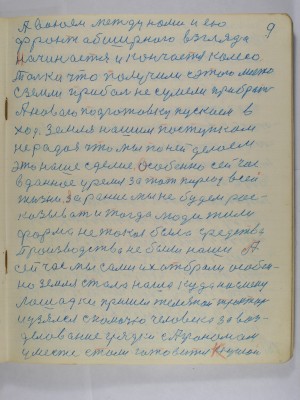 9
А вообем между нами и его
фронт обширного взгляда
начинается и кончается колесо
Только что получили с этого места
с земли прибол не сумели прибрать
А новаю подготовку пускаем в
ход. Земля нашим поступкам
не рада это мы по ней делаем
это наше зделие Особенно сейчас
в данное время За этот период всей
жизни. За рание мы не будем рас-
казывать и тогда люди жили
форма не такая была средства
производства не были наши А
сейчас мы сами их отобрали особен-
но земля стала наша куда на
лошадки пришел железный трактор
и взялся с помощью человека за воз-
делование грядки с Агрономам
вместе стали готовится